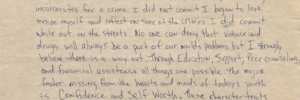 incarcerated for a crime I did not commit I began to look
inside myself and reflect on some of the crimes I did commit
while out on the streets. No one can deny that violence and
drugs will always be a part of our worlds problems but I strongly
believe there is a way out. Through Education, Support, Peer counseling,
and financial assistance all things are possible. The major
factor missing from the hearts and mind of todays youth
is Confidence and Self Worth. These character traits